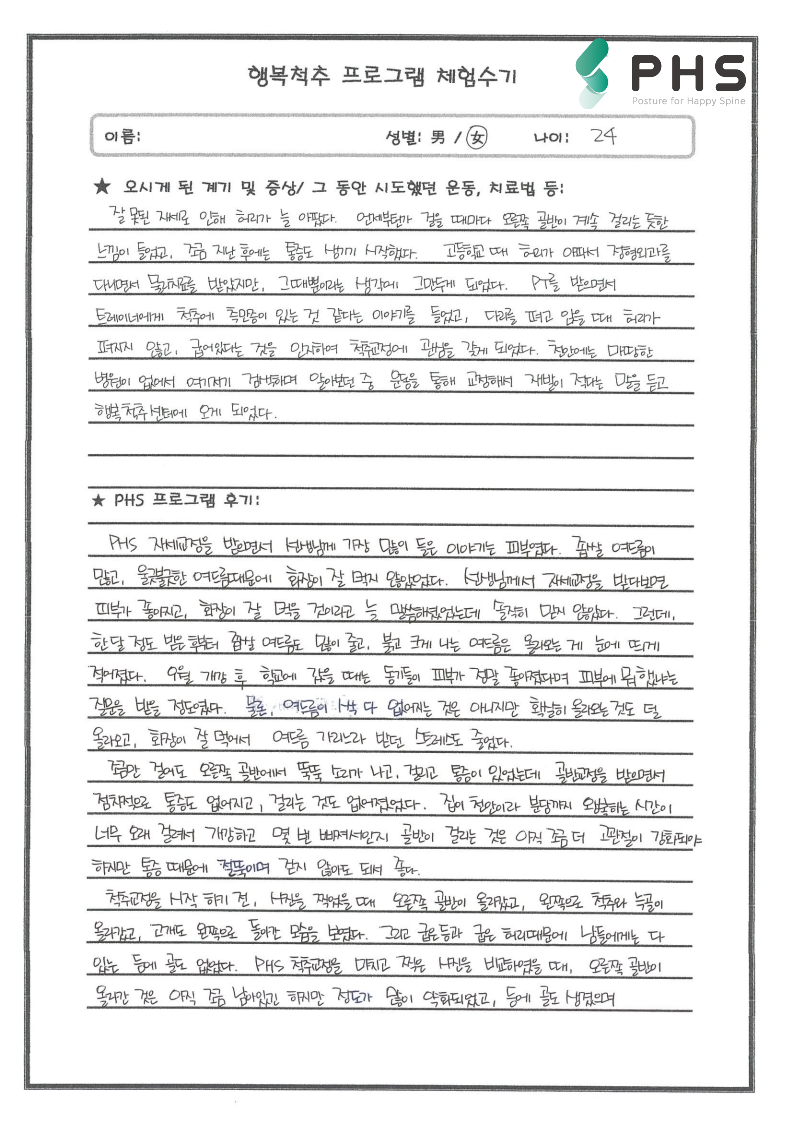 행복척추 프로그램 체험수기
PHS
Posture for Happy Spine
이름: 성별: 男 / 女 나이: 24
★ 오시게 된 계기 및 증상/ 그 동안 시도했던 운동, 치료법 등:
잘 못된 자세로 인해 허리가 늘 아팠다. 언제부턴가 걸을 때마다 오른쪽 골반이 계속 걸리는 듯한
느낌이 들었고, 조금 지난 후에는 통증도 생기기 시작했다. 고등학교 때 허리가 아파서 정형외과를
다니면서 물리치료를 받았지만, 그때뿐이라는 생각에 그만두게 되었다. PT를 받으면서
트레이너에게 척추에 측만증이 있는 것 같다는 이야기를 들었고, 다리를 펴고 앉을 때 허리가
펴지지 않고, 굽어있다는 것을 인지하여 척추교정에 관심을 갖게 되었다. 천안에는 마땅한
병원이 없어서 여기저기 검색하며 알아보던 중 운동을 통해 교정해서 재발이 적다는 말을 듣고
행복척추센터에 오게 되었다.
★ PHS 프로그램 후기:
PHS 자세교정을 받으면서 선생님께 가장 많이 들은 이야기는 피부였다. 좁쌀 여드름이
많고, 울긋불긋한 여드름때문에 화장이 잘 먹지 않았었다. 선생님께서 자세교정을 받다보면
피부가 좋아지고, 화장이 잘 먹을 것이라고 늘 말씀해주셨었는데 솔직히 믿지 않았다. 그런데,
한달 정도 받은 후부터 좁쌀 여드름도 많이 줄고, 붉고 크게 나는 여드름은 올라오는 게 눈에 띄게
적어졌다. 9월 개강 후 학교에 갔을 때는 동기들이 피부가 정말 좋아졌다며 피부에 뭐했냐는
질문을 받을 정도였다. 물론, 여드름이 싹 다 없어지는 것은 아니지만 확실히 올라오는것도 덜
올라오고, 화장이 잘 먹어서 여드름 가리느라 받던 스트레스도 줄었다.
조금만 걸어도 오른쪽 골반에서 뚝뚝 소리가 나고, 걸리고 통증이 있었는데 골반교정을 받으면서
점차적으로 통증도 없어지고, 걸리는 것도 없어졌었다. 집이 천안이라 분당까지 왕복하는 시간이
너무 오래 걸려서 개강하고 몇 번 빠져서인지 골반이 걸리는 것은 아직 조금 더 고관절이 강화되야
하지만 통증 때문에 절뚝이며 걷지 않아도 되서 좋다.
척추교정을 시작 하기 전, 사진을 찍었을 때 오른쪽 골반이 올라갔고, 왼쪽으로 척추와 늑골이
올라갔고, 고개도 왼쪽으로 돌아간 모습을 보였다. 그리고 굽은등과 굽은 허리때문에 남들에게는 다
있는 등에 골도 없었다. PHS 척추교정을 마치고 찍은 사진을 비교하였을 때, 오른쪽 골반이
올라간 것은 아직 조금 남아있긴 하지만 정도가 많이 약화되었고, 등에 골도 생겼으며